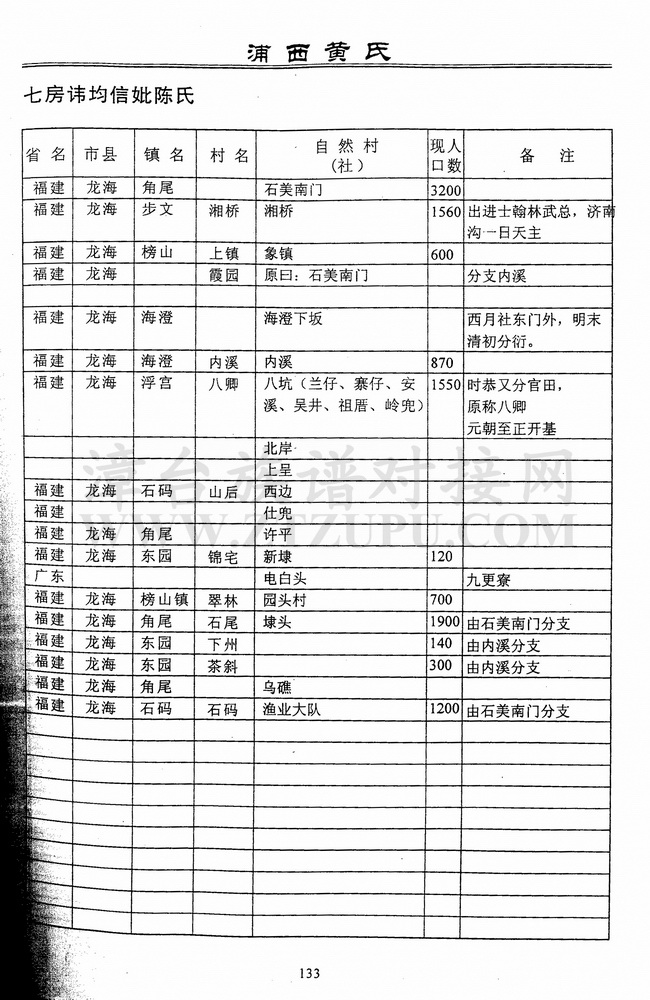 浦西黄氏
七房讳均信妣陈氏
省名 市县 镇名 村名 自然村（社） 现人口数 备注
福建 龙海 角尾 石美南门 3200
福建 龙海 步文 湘桥 湘桥 1560 出进士翰林武总，济南
沟一日天主
福建 龙海 榜山 上镇 象镇 600
福建 龙海 霞园 原曰：石美南门 分支内溪
福建 龙海 海澄 海澄下坂 西月社东门外，明末
清初分衍。
福建 龙海 海澄 内溪 内溪 870
福建 龙海 浮宫 八卿 八坑（兰仔、寨仔、安 1550 时恭又分官田，
溪、吴井、祖厝、岭兜） 原称八卿
元朝至正开基
北岸
上呈
福建 龙海 石码 山后 西边
福建 仕兜
福建 龙海 角尾 许平
福建 龙海 东园 锦宅 新埭 120
广东 电白头 九更寮
福建 龙海 榜山镇 翠林 园头村 700
福建 龙海 角尾 石尾 埭头 1900 由石美南门分支
福建 龙海 东园 下州 140 由内溪分支
福建 龙海 东园 茶斜 300 由内溪分支
福建 龙海 角尾 乌礁
福建 龙海 石码 石码 渔业大队 1200 由石美南门分支
漳台族谱对接网
WWW.ZTZUPU.COM
133